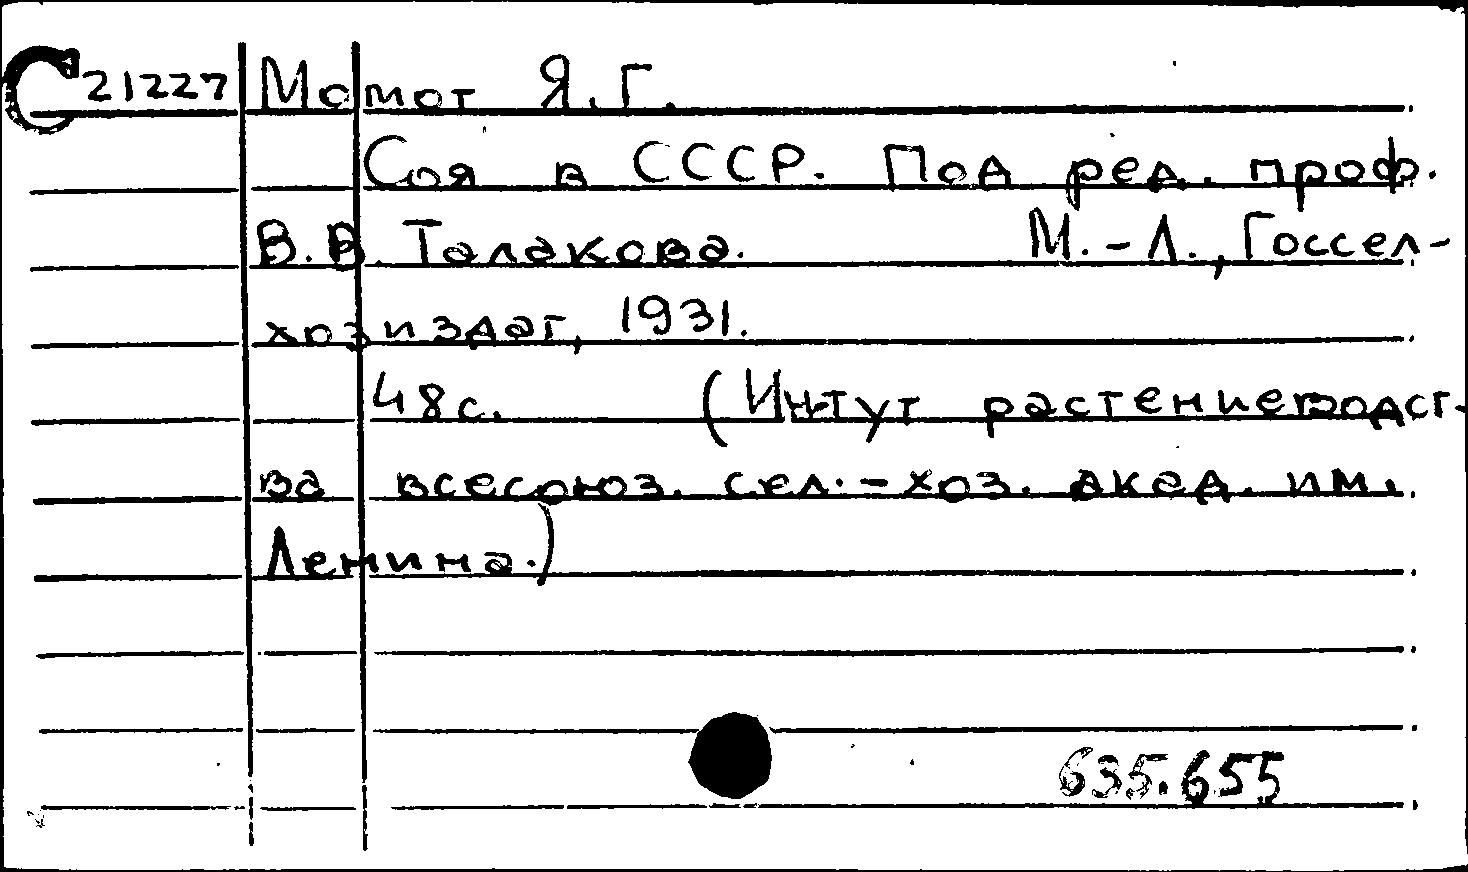 С 21227 Момот Я. Г.
Соя в СССР. Под ред. проф.
В. В. Талакова. М.-Л., Госсел-
хозиздат, 1931.
48 с. (Интут растениеводст-
ва всесоюз. сел.-хоз. акад. им.
Ленина.)
635.655